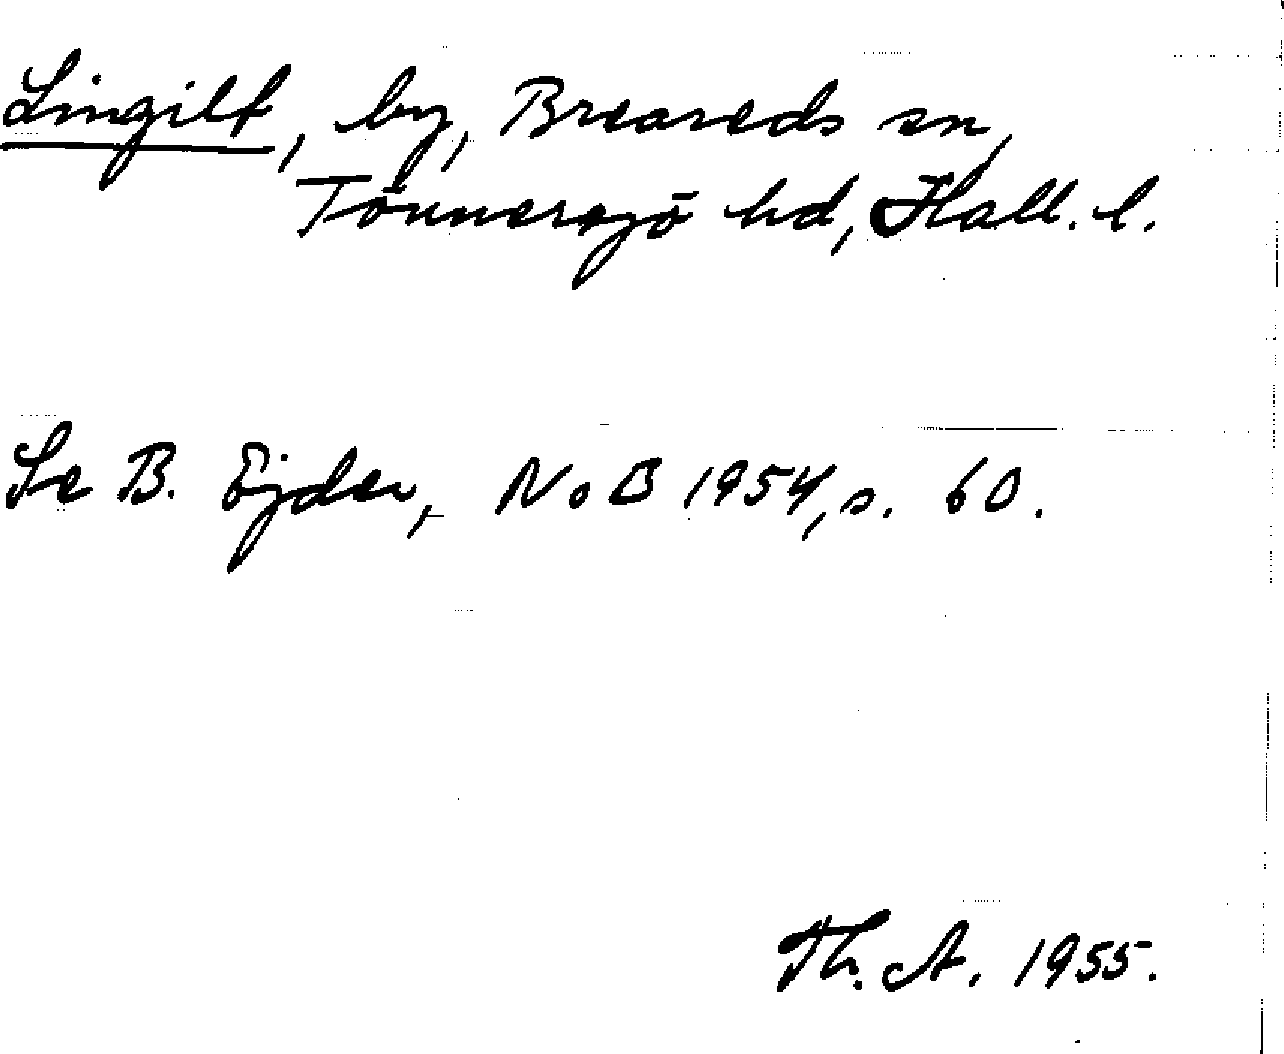 Lingilt, by, Breareds sn,
Tönnersjö hd, Hall. l.
Se B. Ejder, NoB 1954, s. 60.
Th. A. 1955.